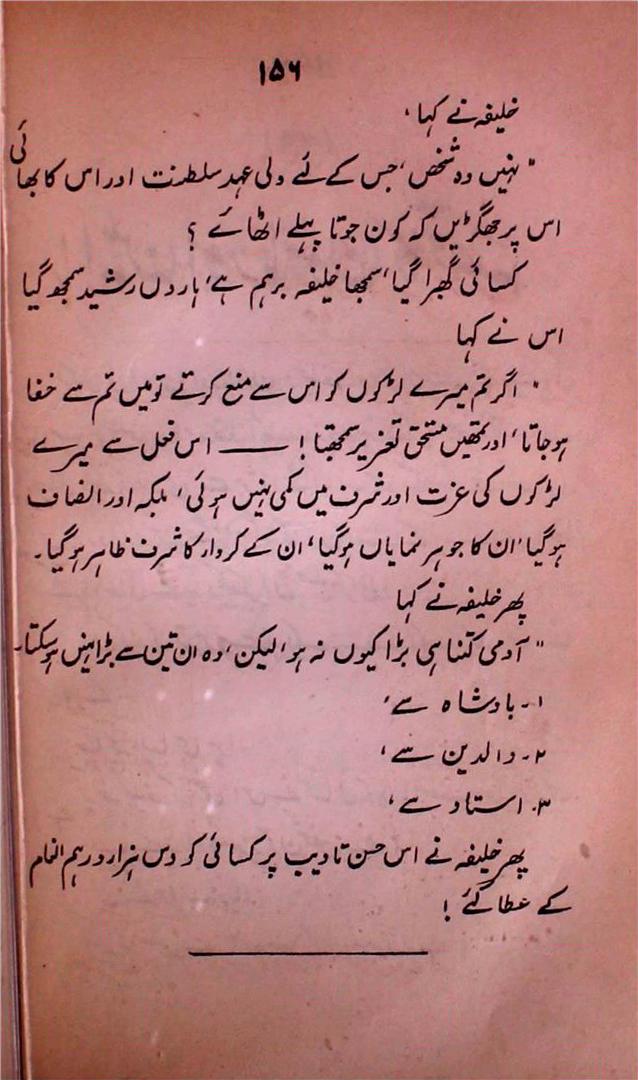 ۱۵۶
خلیفہ نے کہا،
"نہیں وہ شخص، جس کے لئے ولی عہد سلطنت اور اس کا بھائی
اس پر جھگڑیں کہ کون جوتا پہلے اٹھائے ؟
کسائی گھبرا گیا، سمجھا خلیفہ برہم ہے، ہارون رشید سمجھ گیا
اس نے کہا
"اگر تم میرے لڑکوں کو اس سے منع کرتے تو میں تم سے خفا
ہو جاتا، اور تمھیں مستحق تعزیر سمجھتا! ــــــ اس فعل سے میرے
لڑکوں کی عزت اور شرف میں کمی نہیں ہوئی، بلکہ اور انصاف
ہو گیا، ان کا جوہر نمایاں ہو گیا، ان کے کردار کا شرف ظاہر ہو گیا۔
پھر خلیفہ نے کہا
"آدمی کتنا ہی بڑا کیوں نہ ہو، لیکن، وہ ان تین سے بڑا نہیں ہو سکتا۔
۱۔ بادشاہ سے،
۲۔ والدین سے،
۳۔ استاد سے،
پھر خلیفہ نے اس حسن تادیب پر کسائی کو دس ہزار درہم انعام
کے عطا کئے !